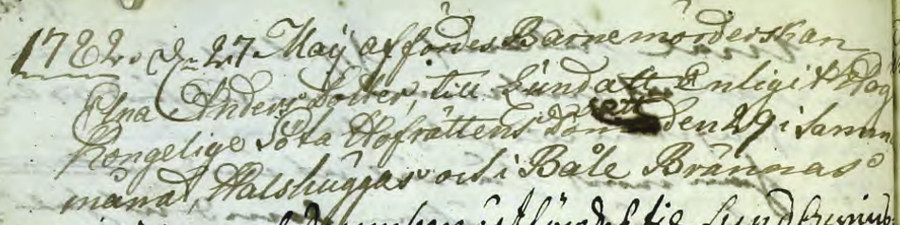 1782. d. 27. Maÿ affördes Barnemörderskan
Elna Anders dotter, till Lund att Enligit Kong
Kongelige Göta Hofrättens Dom den 29 i samm
månat, Halshuggas och i Båle Brännas